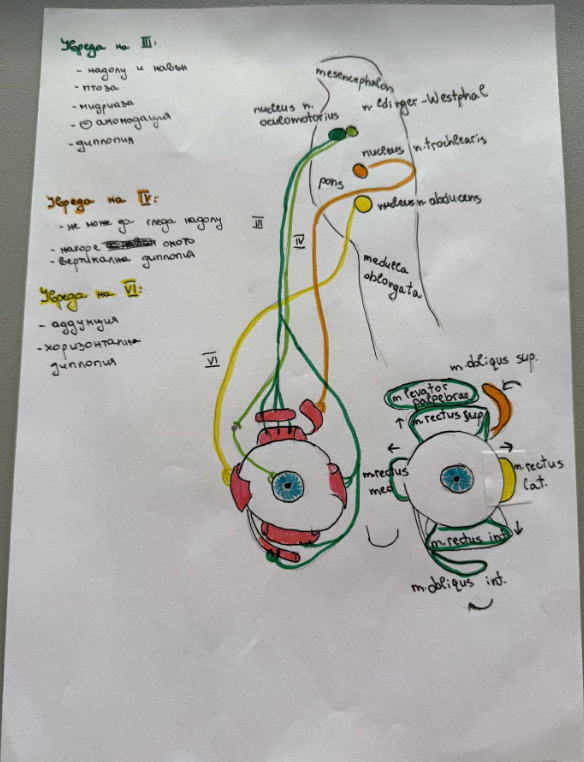 Увреда на III:
- надолу и навън
- птоза
- мидриаза
- ⊖ акомодация
- диплопия
Увреда на IV:
- не може да гледа надолу
- нагоре око­то
- вертикална диплопия
Увреда на VI:
- аддукция
- хоризонтална
диплопия
mesencephalon
nucleus n.
oculomotorius
n. Edinger-Westphal
nucleus n. trochlearis
pons
nucleus n. abducens
medulla
oblongata
III
IV
VI
m. obliqus sup.
m. levator
palpebrae
m. rectus sup.
m. rectus
med
m. rectus
lat.
m. rectus inf.
m. obliqus inf.